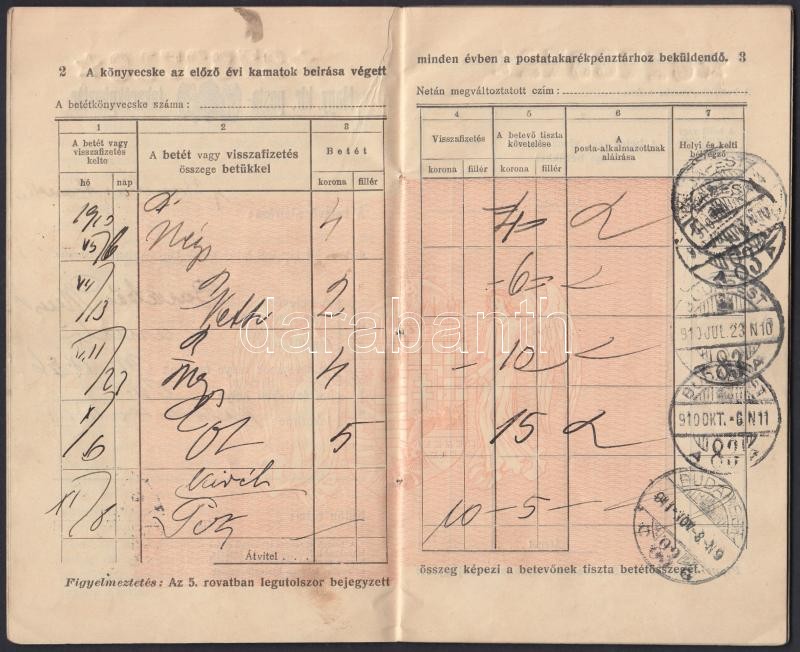 2 A könyvecske az előző évi kamatok beirása végett
A betétkönyvecske száma:
1
2
3
A betét vagy visszafizetés kelte
A betét vagy visszafizetés összege betükkel
Betét
hó
nap
korona
fillér
1910
VI/6
Négy
4
VII/13
Kettő
2
VII/23
Négy
4
X/6
Öt
5
XI/8
Átvitel
Figyelmeztetés: Az 5. rovatban legutolszor bejegyzett
minden évben a postatakarékpénztárhoz beküldendő. 3
Netán megváltoztatott czím:
4
5
6
7
Visszafizetés
A betevő tiszta követelése
A posta-alkalmazottnak aláirása
Helyi és kelti bélyegző
korona
fillér
korona
fillér
-4-
-6-
-10-
15
10
-5-
910 JUL. 23 N10
910 OKT. -6 N11
BUDAPEST
összeg képezi a betevőnek tiszta betétösszegét.
darabanth